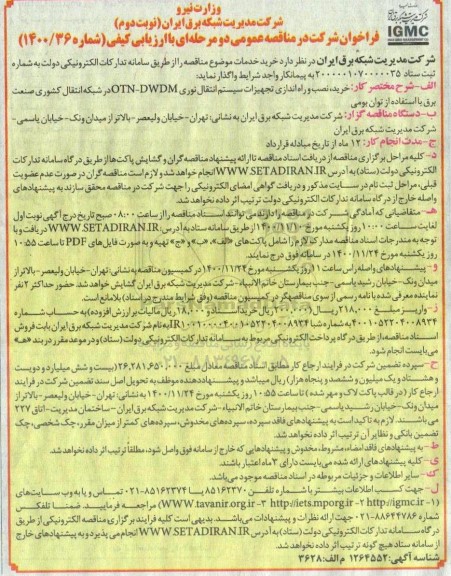 وزارت نیرو
شرکت مدیریت شبکه برق ایران (نوبت دوم)
IGMC
فراخوان شرکت در مناقصه عمومی دو مرحله‌ای با ارزیابی کیفی (شماره ۱۴۰۰/۳۶)
شرکت مدیریت شبکه برق ایران در نظر دارد خرید خدمات موضوع مناقصه را از طریق سامانه تدارکات الکترونیکی دولت به شماره
ثبت ستاد ۲۰۰۰۰۰۱۰۷۰۰۰۰۰۳۵ به پیمانکار واجد شرایط واگذار نماید:
الف- شرح مختصر کار: خرید، نصب و راه‌اندازی تجهیزات سیستم انتقال نوری OTN-DWDM در شبکه انتقال کشوری صنعت
برق با استفاده از توان بومی
ب- دستگاه مناقصه گزار: شرکت مدیریت شبکه برق ایران به نشانی: تهران- خیابان ولیعصر- بالاتر از میدان ونک- خیابان یاسمی-
شرکت مدیریت شبکه برق ایران
ج- مدت انجام کار: ۱۲ ماه از تاریخ مبادله قرارداد
د- کلیه مراحل برگزاری مناقصه از دریافت اسناد مناقصه تا ارائه پیشنهاد مناقصه‌گران و گشایش پاکت‌ها از طریق درگاه سامانه تدارکات
الکترونیکی دولت (ستاد) به آدرس WWW.SETADIRAN.IR انجام خواهد شد و لازم است مناقصه گران در صورت عدم عضویت
قبلی، مراحل ثبت نام در سایت مذکور و دریافت گواهی امضای الکترونیکی را جهت شرکت در مناقصه محقق سازند به پیشنهادهای
واصله خارج از درگاه سامانه تدارکات الکترونیکی دولت ترتیب اثر داده نخواهد شد.
هـ- متقاضیانی که آمادگی شرکت در مناقصه را دارند می توانند اسناد مناقصه را از ساعت ۰۸:۰۰ صبح تاریخ درج آگهی نوبت اول
لغایت ساعت ۱۰:۰۰ روز یکشنبه مورخ ۱۴۰۰/۱۱/۱۰ از طریق سامانه ستاد به آدرس: WWW.SETADIRAN.IR دریافت و با
توجه به مندرجات اسناد مناقصه مدارک لازم را شامل پاکت‌های «الف»، «ب» و «ج» تهیه و به صورت فایل‌های PDF تا ساعت ۱۰:۵۵
روز یکشنبه مورخ ۱۴۰۰/۱۱/۲۴ در سامانه فوق درج نمایند.
و- پیشنهادهای واصله راس ساعت ۱۱ روز یکشنبه مورخ ۱۴۰۰/۱۱/۲۴ در کمیسیون مناقصه به نشانی تهران- خیابان ولیعصر- بالاتر از
میدان ونک- خیابان رشید یاسمی- جنب بیمارستان خاتم الانبیاء- شرکت مدیریت شبکه برق ایران گشایش خواهد شد. حضور حداکثر ۲ نفر
نماینده معرفی شده با نامه رسمی از سوی مناقصه‎گر در کمیسیون مناقصه (وفق شرایط مندرج در اسناد) بلامانع است.
ز- واریز مبلغ ۲۱۸,۰۰۰ ریال (۲۰۰,۰۰۰ ریال خرید اسناد و ۱۸,۰۰۰ ریال مالیات بر ارزش افزوده) به حساب شماره
۴۰۰۱۰۵۲۲۰۴۰۰۸۹۳۴ به نام شرکت مدیریت شبکه برق ایران بابت فروش
اسناد مناقصه از طریق درگاه پرداخت الکترونیکی مربوط به سامانه تدارکات الکترونیکی دولت (ستاد) و در موعد مقرر در بند «هـ»
می‌بایست انجام شود.
ح- سپرده تضمین شرکت در فرایند ارجاع کار مطابق اسناد مناقصه معادل مبلغ ۲۶,۲۸۱,۶۵۰,۰۰۰ (بیست و شش میلیارد و دویست
و هشتاد و یک میلیون و ششصد و پنجاه هزار) ریال میباشد و پیشنهاددهنده موظف به تحویل اصل سند تضمین شرکت در فرایند
ارجاع کار (در قالب پاکت لاک و مهر شده) تا ساعت ۱۰:۵۵ روز یکشنبه مورخ ۱۴۰۰/۱۱/۲۴ به نشانی: تهران- خیابان ولیعصر- بالاتر از
میدان ونک- خیابان رشید یاسمی- جنب بیمارستان خاتم الانبیاء- شرکت مدیریت شبکه برق ایران- ساختمان مدیریت- اتاق ۲۲۷
می باشند. لازم به تاکید است به پیشنهادهای فاقد سپرده، سپرده‌های مخدوش، سپرده‌های کمتر از میزان مقرر، چک شخصی، چک
تضمین بانکی و نظایر آن ترتیب اثر داده نخواهد شد.
ط- به پیشنهادهای فاقد امضاء، مشروط، مخدوش و پیشنهادهایی که خارج از سامانه فوق واصل شود، مطلقا ترتیب اثر داده نخواهد شد.
ی- کلیه پیشنهادهای ارائه شده می‌بایست دارای ۳ ماه اعتبار باشند.
ک- سایر اطلاعات و جزئیات مربوطه در اسناد مناقصه موجود می‌باشد.
ل- جهت کسب اطلاعات بیشتر با شماره تلفن ۸۵۱۶۲۳۷۰ یا ۸۵۱۶۲۳۷۴-۰۲۱ تماس و یا به وب سایت‌های
(۱- http://igmc.ir ۲- http://iets.mporg.ir ۳- WWW.tavanir.org.ir) مراجعه فرمایید. ضمنا تلفکس
۸۸۶۴۴۷۸۶-۰۲۱ جهت ارائه نظرات و پیشنهادات می‌باشد. بدیهی است کلیه فرایند برگزاری مناقصه الکترونیکی از طریق
درگاه سامانه تدارکات الکترونیکی دولت (ستاد) به آدرس WWW.SETADIRAN.IR انجام می پذیرد و به پیشنهادهای خارج
از سامانه ستاد هیچ گونه ترتیب اثر داده نخواهد شد.
شناسه آگهی: ۱۲۶۴۵۵۲ م الف: ۳۶۲۸